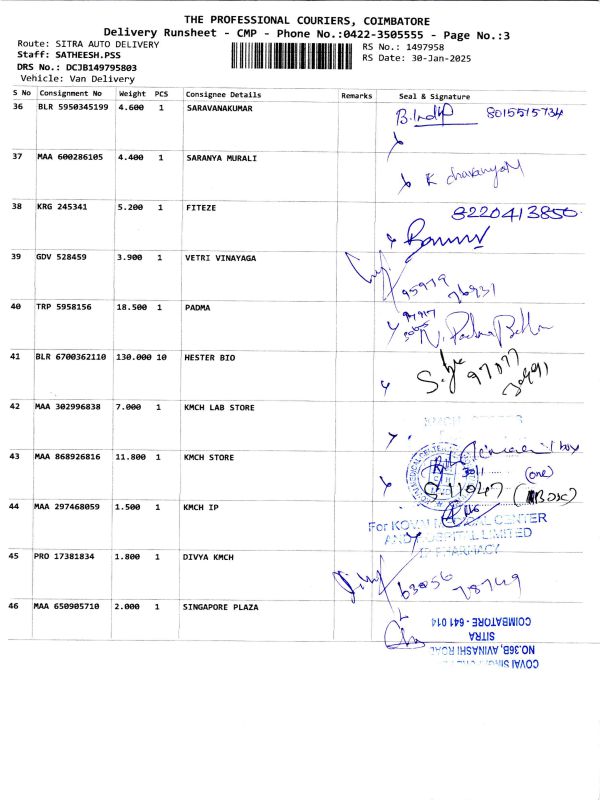 THE PROFESSIONAL COURIERS, COIMBATORE
Delivery Runsheet - CMP - Phone No.:0422-3505555 - Page No.:3
Route: SITRA AUTO DELIVERY
RS No.: 1497958
Staff: SATHEESH.PSS
RS Date: 30-Jan-2025
DRS No.: DCJB149795803
Vehicle: Van Delivery
S No Consignment No Weight PCS Consignee Details Remarks Seal & Signature
36 BLR 5950345199 4.600 1 SARAVANAKUMAR
8015515734
37 MAA 600286105 4.400 1 SARANYA MURALI
38 KRG 245341 5.200 1 FITEZE
8220413850
39 GDV 528459 3.900 1 VETRI VINAYAGA
95979
76931
40 TRP 5958156 18.500 1 PADMA
41 BLR 6700362110 130.000 10 HESTER BIO
97077
42 MAA 302996838 7.000 1 KMCH LAB STORE
43 MAA 868926816 11.800 1 KMCH STORE
1 box
30/1 (one)
44 MAA 297468059 1.500 1 KMCH IP
For KOVAI MEDICAL CENTER
AND HOSPITAL LIMITED
IP PHARMACY
45 PRO 17381834 1.800 1 DIVYA KMCH
63856
78749
46 MAA 650905710 2.000 1 SINGAPORE PLAZA
COIMBATORE - 641 014
SITRA
NO.36B, AVINASHI ROAD